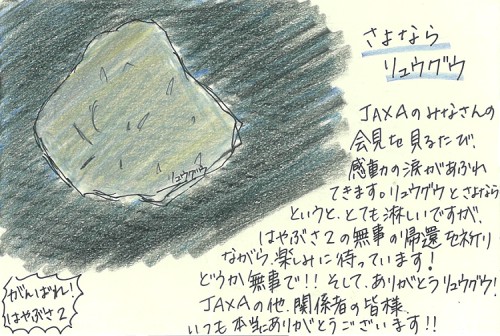 さよなら
リュウグウ
JAXAのみなさんの
会見を見るたび、
感動の涙があふれ
てきます。リュウグウとさよなら
というと、とても淋しいですが、
はやぶさ2の無事の帰還を祈り
ながら、楽しみに待っています!
どうか無事で!!そして、ありがとうリュウグウ!
JAXAの他、関係者の皆様、
いつも本当にありがとうございます!!
リュウグウ
がんばれ!
はやぶさ2